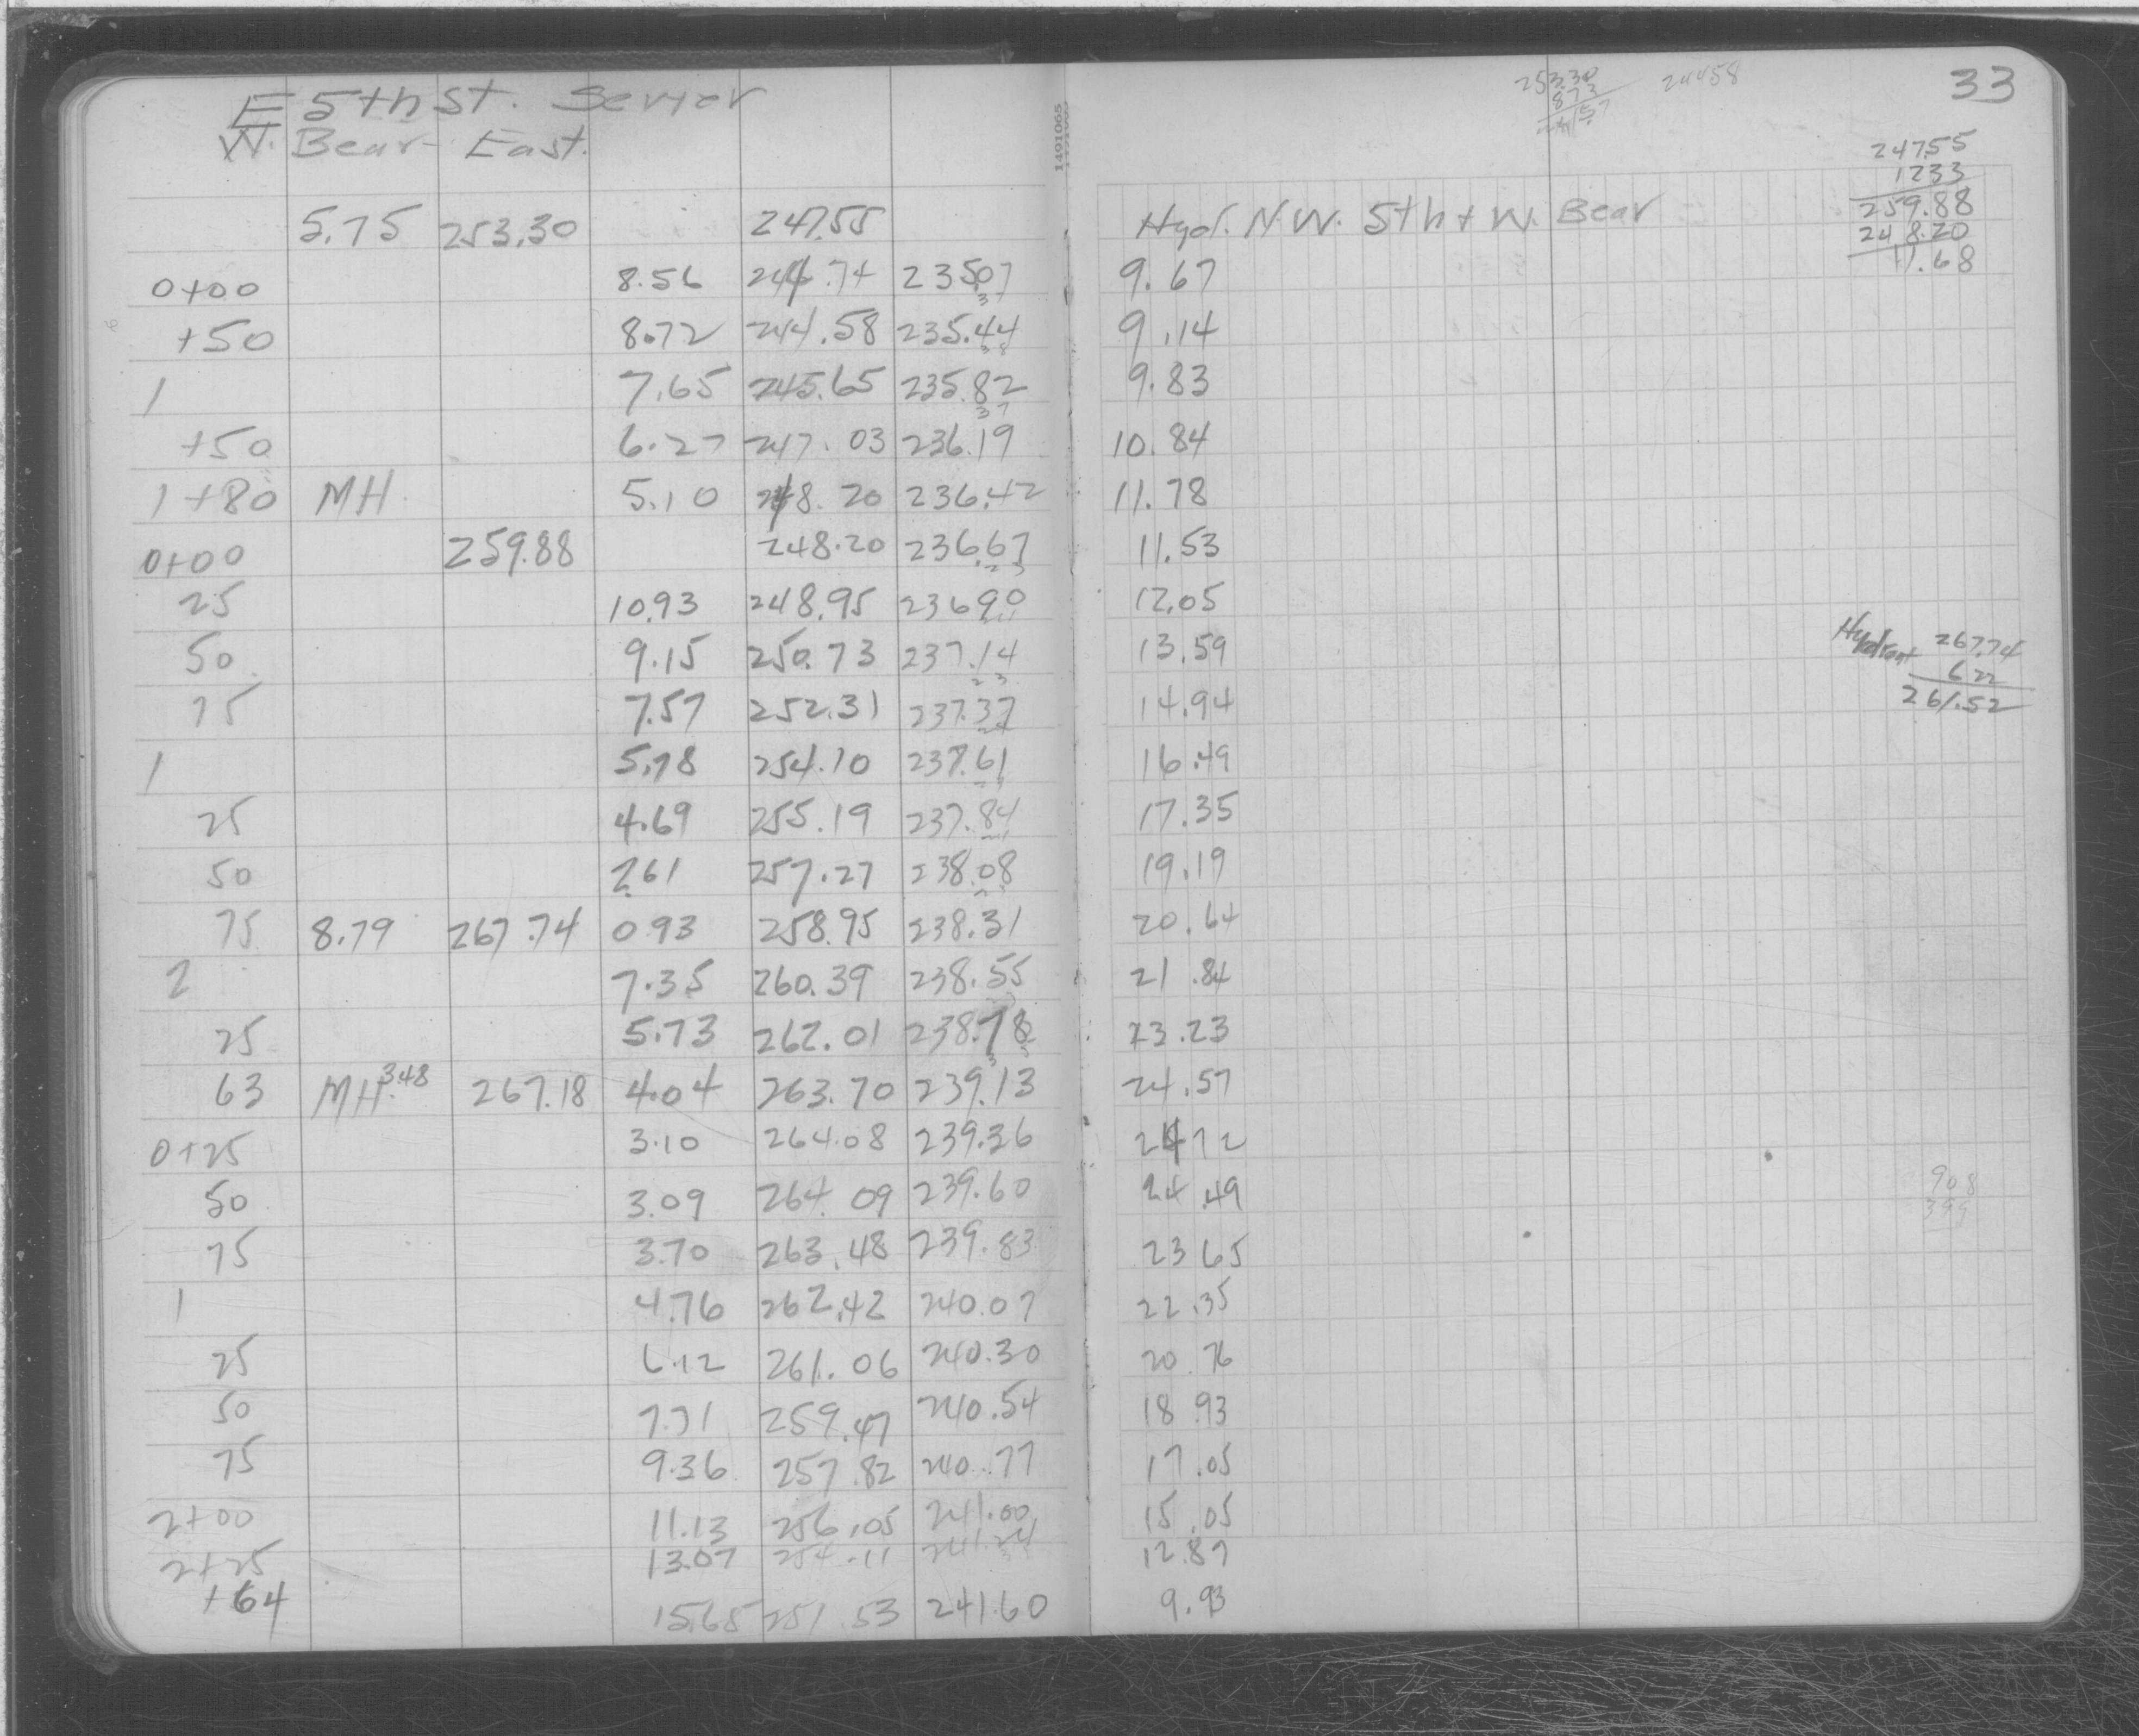 33
E 5th St. Sewer
W. Bear East.
253.30
8.73
24458
247.55
1233
259.88
248.20
11.68
5.75 253.30 247.55 Hyd. N.W. 5th + W. Bear
0+00 8.56 244.74 235.07 9.67
37
+50 8.72 244.58 235.44 9.14
38
1 7.65 245.65 235.82 9.83
37
+50 6.27 247.03 236.19 10.84
1+80 MH 5.10 248.20 236.42 11.78
0+00 259.88 248.20 236.67 11.53
23
25 10.93 248.95 236.90 12.05
50 9.15 250.73 237.14 13.59
23
75 7.57 252.31 237.37 14.94
24
1 5.78 254.10 237.61 16.49
25 4.69 255.19 237.84 17.35
50 2.61 257.27 238.08 19.19
75 8.79 267.74 0.93 258.95 238.31 20.64
2 7.35 260.39 238.55 21.84
25 5.73 262.01 238.78 23.23
63 MH. 348 267.18 4.04 263.70 239.13 24.57
0+25 3.10 264.08 239.36 24 72
50 3.09 264.09 239.60 24.49
75 3.70 263.48 239.83 23 65
1 4.76 262.42 240.07 22.35
25 6.12 261.06 240.30 20.76
50 7.71 259.47 240.54 18.93
75 9.36 257.82 240.77 17.05
2+00 11.13 256.05 241.00 15.05
2+25 13.07 254.11 241.24 12.87
+64 15.65 251.53 241.60 9.93
Hydrant 267.74
6 22
261.52
908
399
1491065